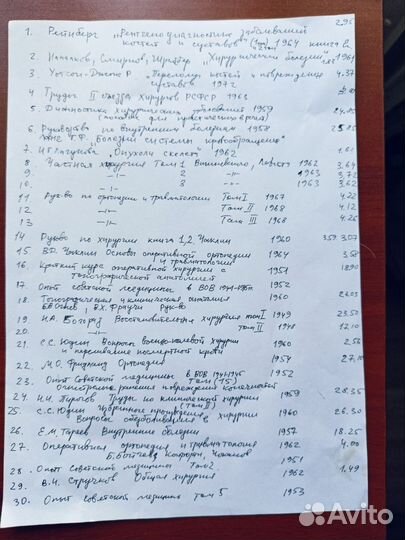 2.96
1. Рейнберг „Рентгенодиагностика заболеваний
костей и суставов" (2 том) 1964 книга 2
2. Смирнов, Шрайбер „Хирургические болезни" 1961
3. Уотсон-Джонс Р „Переломы костей и повреждения
суставов 1972 4.37
4 Труды II съезда хирургов РСФСР 1963
5. Диагностика хирургических заболеваний 1959
6. Руководство по внутренним болезням 1958
Ланг Г.Ф. „Болезни системы кровообращения"
7. „Опухоли скелета" 1962
8. Частная хирургия Том 1 Вишневского, Левита 1962 3,64
9 -"- 2 -"- 1963 3,72
10. -"- 3 -"- 1963 3,62
11. Руково по ортопедии и травматологии Том I 1967 4.22
12 -"- Том II 1968 4.12
13 -"- Том III 1968 4.26
14 Руково по хирургии книга 1,2. Чаклин 1960 3.59 3.07
15 В.Д. Чаклин Основы оперативной ортопедии
и травматологии 1964 3.58
16 Краткий курс оперативной хирургии с
топографической анатомией 1951 18.90
17. Опыт советской медицины в ВОВ 1941-1945
18. Топографическая и клиническая анатомия 1960
В.Х. Фраучи Руково
19 Н.А. Богораз Восстановительная хирургия том I 1949 23.50
20. -"- том II 1948 12.10
21. С.С. Юдин Вопросы военно-полевой хирургии
и переливание посмертной крови 1960
22. М.О. Фридланд Ортопедия 1954 27,10
23. Опыт Советской медицины в ВОВ 1941-1945 1952
Том (15)
Огнестрельные ранения и повреждения конечностей
24. Н.И. Пирогов Труды по клинической хирургии 1959 28.35
(Том II)
25. С.С. Юдин Избранные произведения 1960 26.30
Вопросы обезболивания в хирургии
26. Е.М. Тареев Внутренние болезни 1957 18.25
27. Оперативная ортопедия и травматология 1962 4.00
Б. Бойчев
28. Опыт Советской медицины Том 2 1951
29. В.И. Стручков Общая хирургия 1962 1,49
30. Опыт советской медицины том 5 1953
Avito